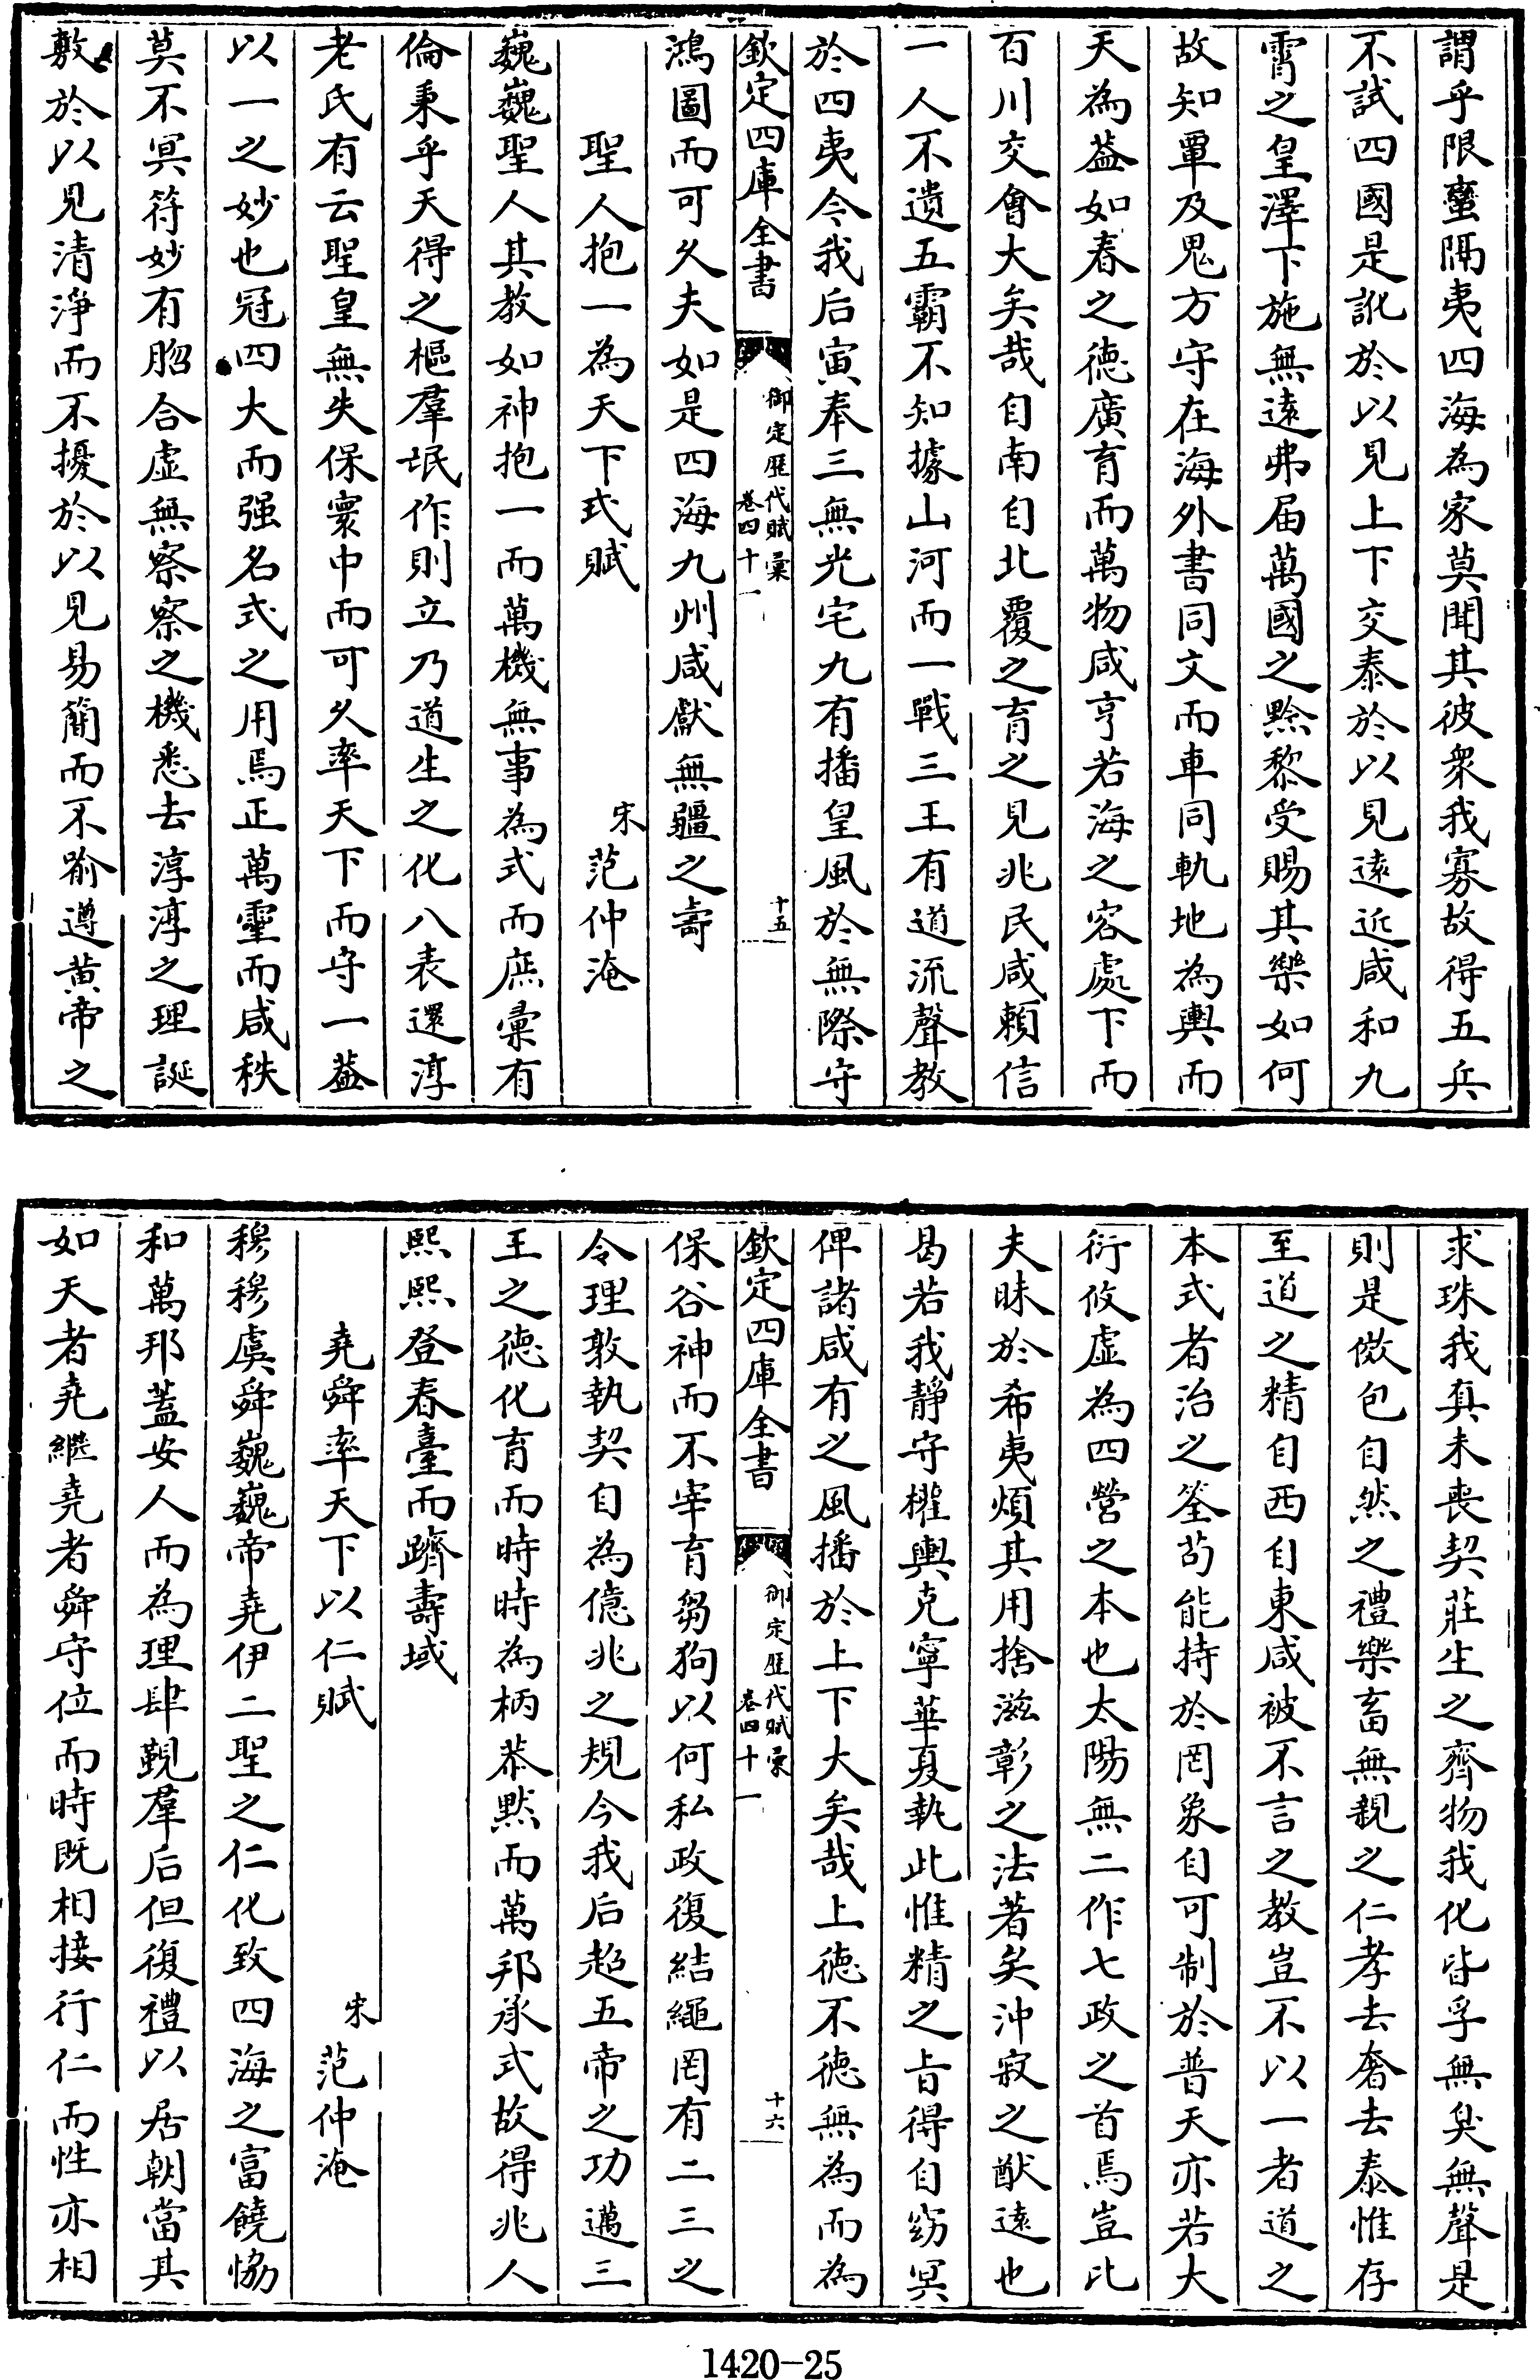 謂乎限蠻隔夷四海為家莫聞其彼衆我寡故得五兵
不試四國是訛於以見上下交泰於以見遠近咸和九
霄之皇澤下施無遠弗届萬國之黔黎受賜其樂如何
故知覃及鬼方守在海外書同文而車同軌地為輿而
天為葢如春之德廣育而萬物咸亨若海之容處下而
百川交會大矣哉自南自北覆之育之見兆民咸賴信
一人不遺五霸不知據山河而一戰三王有道流聲教
於四夷今我后寅奉三無光宅九有播皇風於無際守
欽定四庫全書
御定歷代賦彙
卷四十一
十五
鴻圖而可久夫如是四海九州咸獻無疆之壽
聖人抱一為天下式賦
宋范仲淹
巍巍聖人其教如神抱一而萬機無事為式而庶彙有
倫秉乎天得之樞羣氓作則立乃道生之化八表還淳
老氏有云聖皇無失保寰中而可久率天下而守一葢
以一之妙也冠四大而强名式之用焉正萬靈而咸秩
莫不冥符妙有脗合虚無察察之機悉去淳淳之理誕
敷於以見清淨而不擾於以見易簡而不踰遵黄帝之
求珠我真未喪契莊生之齊物我化皆孚無臭無聲是
則是傚包自然之禮樂畜無親之仁孝去奢去泰惟存
至道之精自西自東咸被不言之教豈不以一者道之
本式者治之筌苟能持於罔象自可制於普天亦若大
衍攸虚為四營之本也太陽無二作七政之首焉豈比
夫昧於希夷煩其用捨滋彰之法著矣沖寂之猷遠也
曷若我靜守權輿克寧華夏執此惟精之旨得自窈冥
俾諸咸有之風播於上下大矣哉上德不德無為而為
欽定四庫全書
御定歷代賦彙
卷四十一
十六
保谷神而不宰育芻狗以何私政復結繩罔有二三之
令理敦執契自為億兆之規今我后超五帝之功邁三
王之德化育而時時為柄恭黙而萬邦承式故得兆人
熙熙登春臺而躋壽域
堯舜率天下以仁賦
宋范仲淹
穆穆虞舜巍巍帝堯伊二聖之仁化致四海之富饒恊
和萬邦蓋安人而為理肆覲羣后但復禮以居朝當其
如天者堯繼堯者舜守位而時既相接行仁而性亦相
1420-25